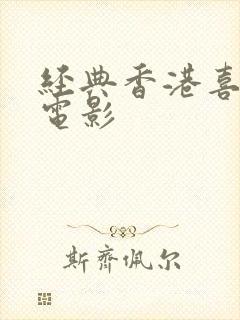 經典香港喜
電影
斯齊佩尔